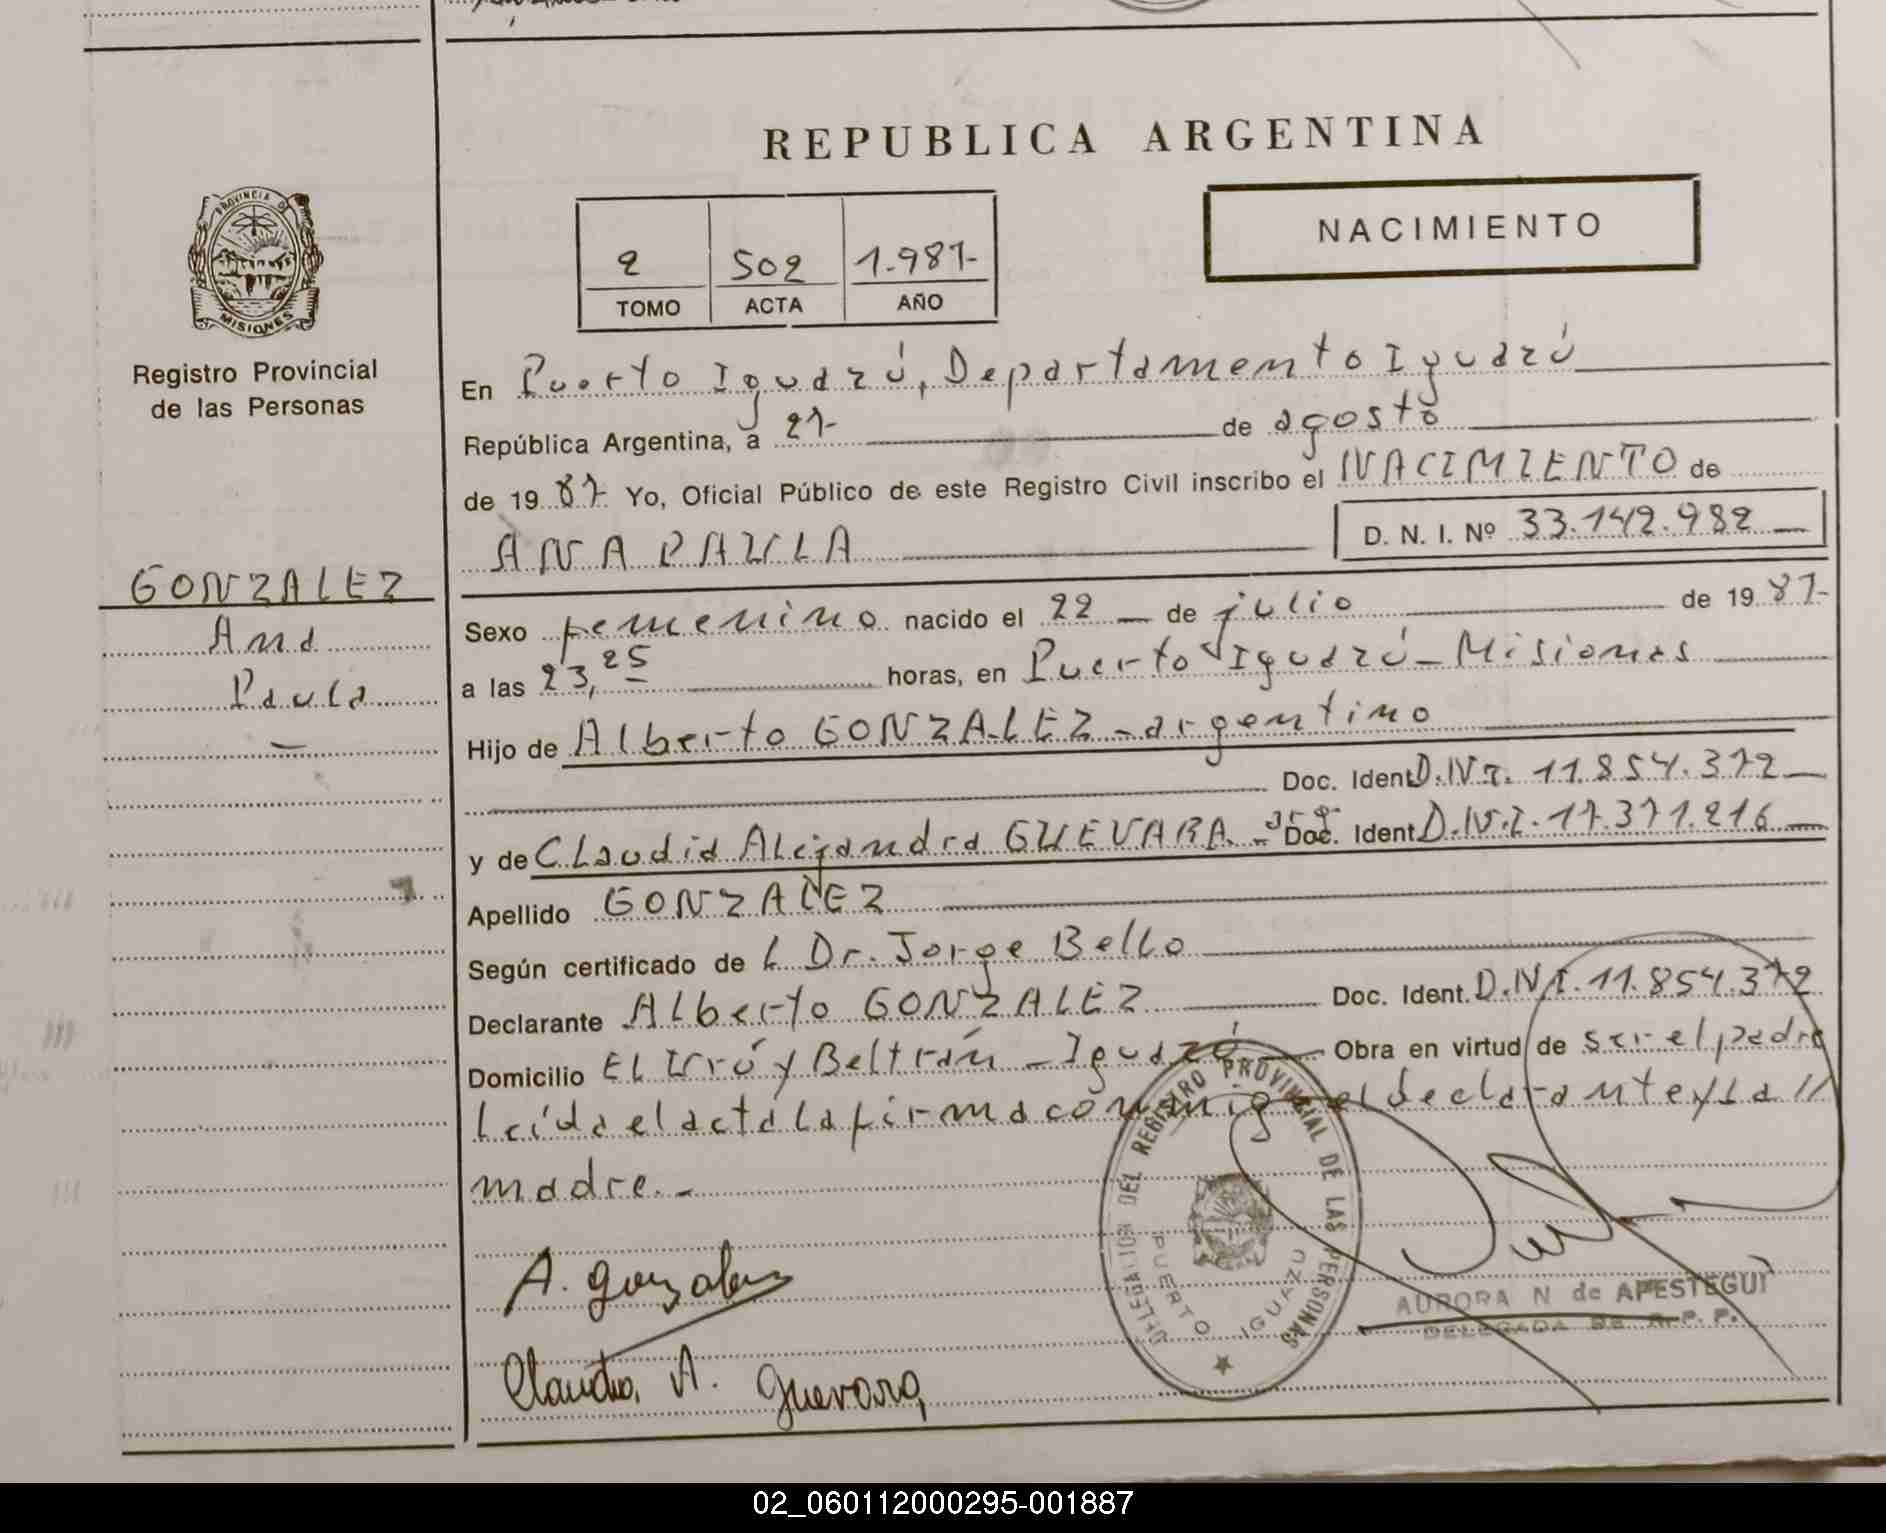 REPUBLICA ARGENTINA
NACIMIENTO
2 502 1.987-
TOMO ACTA AÑO
PROVINCIA DE
MISIONES
Registro Provincial
de las Personas
GONZALEZ
Ana
Paula
En Puerto Iguazú, Departamento Iguazú
República Argentina, a 27- de agosto
de 19 87- Yo, Oficial Público de este Registro Civil inscribo el NACIMIENTO de
ANA PAULA D. N. I. Nº 33.142.982
Sexo femenino nacido el 22 de julio de 19 87-
a las 23,25 horas, en Puerto Iguazú - Misiones
Hijo de Alberto GONZALEZ - argentino
Doc. Ident. D.N.I. 11.854.372
y de Claudia Alejandra GUEVARA - Doc. Ident. D.N.I. 17.371.216
Apellido GONZALEZ
Según certificado de L Dr. Jorge Bello
Declarante Alberto GONZALEZ Doc. Ident. D.N.I. 11.854.372
Domicilio El Urú y Beltrán - Iguazú Obra en virtud de ser el padre
Leída el acta la firma conmigo el declarante y la //
madre.-
DELEGACION DEL REGISTRO PROVINCIAL DE LAS PERSONAS
PUERTO IGUAZU
A. Gonzalez
Claudia A. Guevara
AURORA N de APESTEGUI
DELEGADA DE R.P.P.
02_060112000295-001887